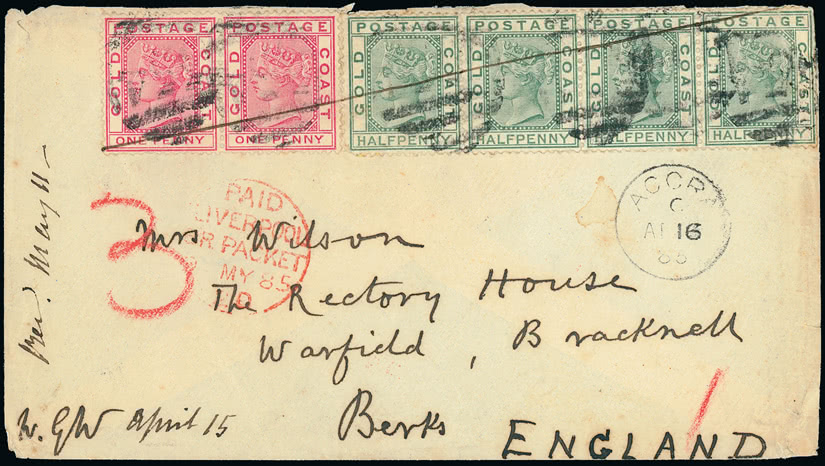 POSTAGE GOLD COAST ONE PENNY
POSTAGE GOLD COAST ONE PENNY
POSTAGE GOLD COAST HALFPENNY
POSTAGE GOLD COAST HALFPENNY
POSTAGE GOLD COAST HALFPENNY
POSTAGE GOLD COAST HALFPENNY
ACCRA
C
AP 16
85
3
PAID
LIVERPOOL
BR PACKET
MY 85
Mrs Wilson
The Rectory House
Warfield, Bracknell
Berks
ENGLAND
May 11
W. GW April 15